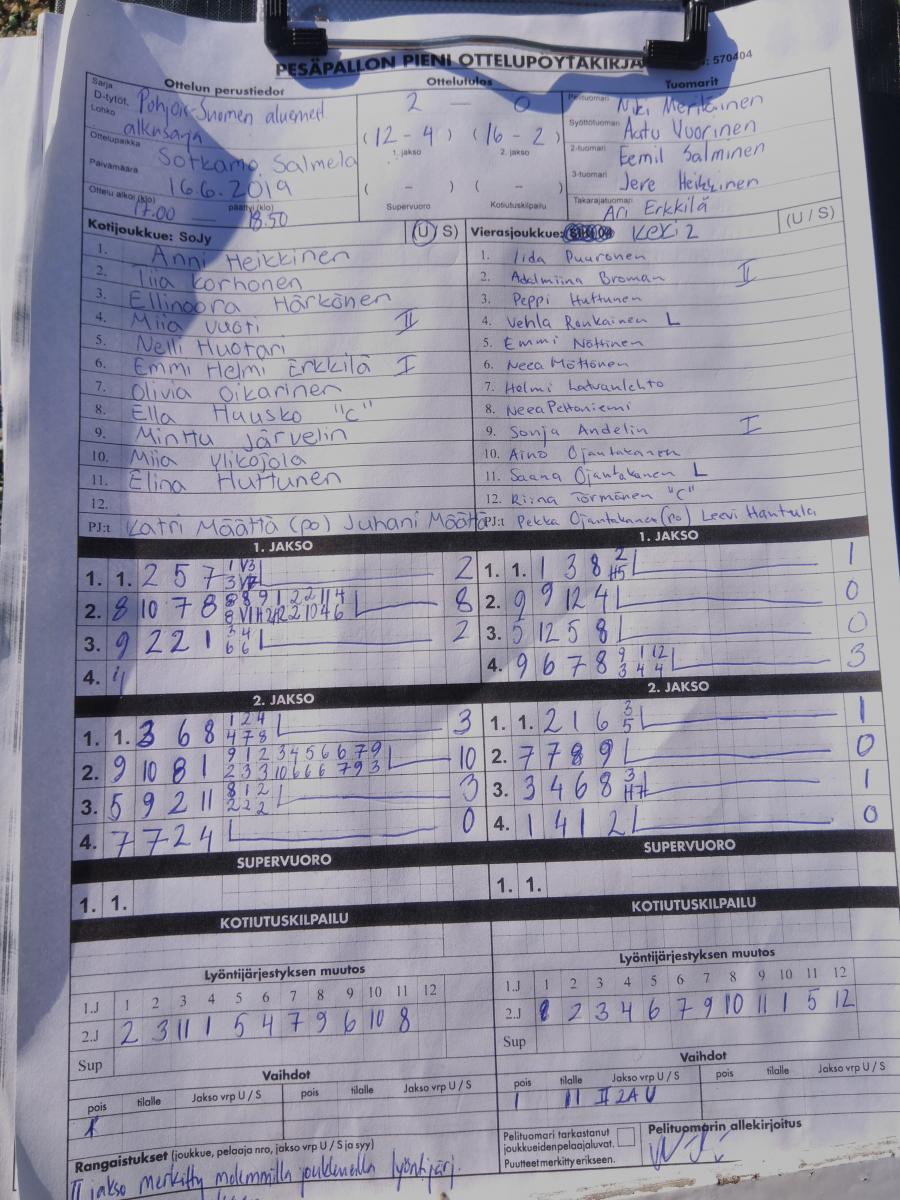 PESÄPALLON PIENI OTTELUPÖYTÄKIRJA : 570404
Ottelun perustiedot Ottelutulos Tuomarit
Sarja D-tytöt, Pohjois-Suomen aluemed
Lohko alkusarja
Ottelupaikka Sotkamo Salmela
Päivämäärä 16.6.2019
Ottelu alkoi (klo) 17.00 päättyi (klo) 18.50
2 — 0
(12 - 4) (16 - 2)
1. jakso 2. jakso
( - ) ( - )
Supervuoro Kotiutuskilpailu
Pelituomari Niki Meriläinen
Syöttötuomari Aatu Vuorinen
2-tuomari Eemil Salminen
3-tuomari Jere Heikkinen
Takarajatuomari Ari Erkkilä
Kotijoukkue: SoJy (U / S)
1. Anni Heikkinen
2. Tiia Korhonen
3. Ellinoora Härkönen
4. Miia Vuoti II
5. Nelli Huotari
6. Emmi Helmi Erkkilä I
7. Olivia Oikarinen
8. Ella Huusko "C"
9. Minttu Järvelin
10. Miia Ylikojola
11. Elina Huttunen
12.
PJ:t Katri Määttä (po) Juhani Määttä
Vierasjoukkue: KeKi 2 (U / S)
1. Iida Puuronen
2. Adalmiina Broman II
3. Peppi Huttunen
4. Vehla Ronkainen L
5. Emmi Nöttinen
6. Neea Möttönen
7. Helmi Latvanlehto
8. Neea Peltoniemi
9. Sonja Andelin I
10. Aino Ojantakanen
11. Saana Ojantakanen L
12. Riina Törmänen "C"
PJ:t Pekka Ojantakanen (po) Leevi Hantula
1. JAKSO
1. 1. 2 5 7 2
2. 8 10 7 8 8
3. 9 2 2 1 3 4 2
6 6
4. 4
1. JAKSO
1. 1. 1 3 8 2 1
H5
2. 9 9 12 4 0
3. 5 12 5 8 0
4. 9 6 7 8 9 1 12 3
3 4 4
2. JAKSO
1. 1. 3 6 8 1 2 4 3
4 7 8
2. 9 10 8 1 9 1 2 3 4 5 6 6 7 9 10
2 3 3 10 6 6 6 7 9 3
3. 5 9 2 11 8 1 2 3
2 2 2
4. 7 7 2 4 0
2. JAKSO
1. 1. 2 1 6 3 1
5
2. 7 7 8 9 0
3. 3 4 6 8 3 1
H7
4. 1 4 1 2 0
SUPERVUORO
1. 1.
SUPERVUORO
1. 1.
KOTIUTUSKILPAILU
KOTIUTUSKILPAILU
Lyöntijärjestyksen muutos
1.J 1 2 3 4 5 6 7 8 9 10 11 12
2.J 2 3 11 1 5 4 7 9 6 10 8
Sup
Lyöntijärjestyksen muutos
1.J 1 2 3 4 5 6 7 8 9 10 11 12
2.J 8 2 3 4 6 7 9 10 11 1 5 12
Sup
Vaihdot
pois tilalle Jakso vrp U / S pois tilalle Jakso vrp U / S
Vaihdot
pois tilalle Jakso vrp U / S pois tilalle Jakso vrp U / S
1 11 II 2A U
Rangaistukset (joukkue, pelaaja nro, jakso vrp U / S ja syy)
II jakso merkitty molemmilla joukkueilla lyöntijärj.
Pelituomari tarkastanut
joukkueiden pelaajaluvat.
Puutteet merkitty erikseen.
Pelituomarin allekirjoitus